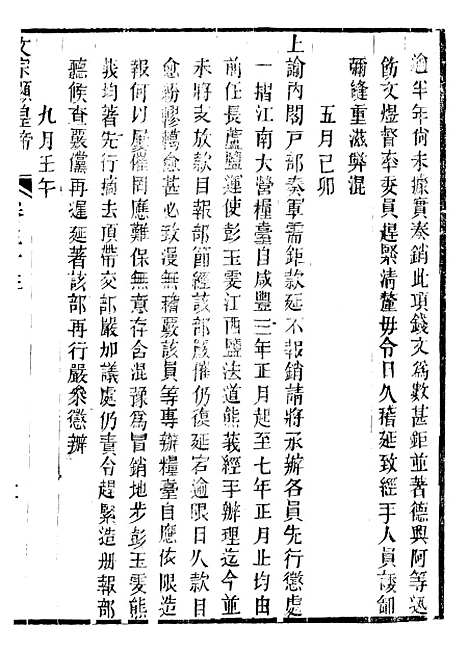 逾半年尙未據實奏銷此項錢文爲數甚鉅並著德興阿等迅
飭文煜督率委員趕緊清釐毋令日久稽延致經手人員諉卸
彌縫重滋弊混
五月己卯
上諭內閣戶部奏軍需鉅款延不報銷請將承辦各員先行懲處
一摺江南大營糧臺自咸豐三年正月起至七年正月止均由
前任長蘆鹽運使彭玉雯江西鹽法道熊莪經手辦理迄今並
未將支放款目報部節經該部嚴催仍復延宕逾限日久款目
愈紛轇轕愈甚必致漫無稽覈該員等專辦糧臺自應依限造
報何以屢催罔應難保無意存含混豫爲冒銷地步彭玉雯熊
莪均著先行摘去頂帶交部嚴加議處仍責令趕緊造册報部
聽候查覈儻再遲延著該部再行嚴叅懲辦
九月壬午
文宗顯皇帝